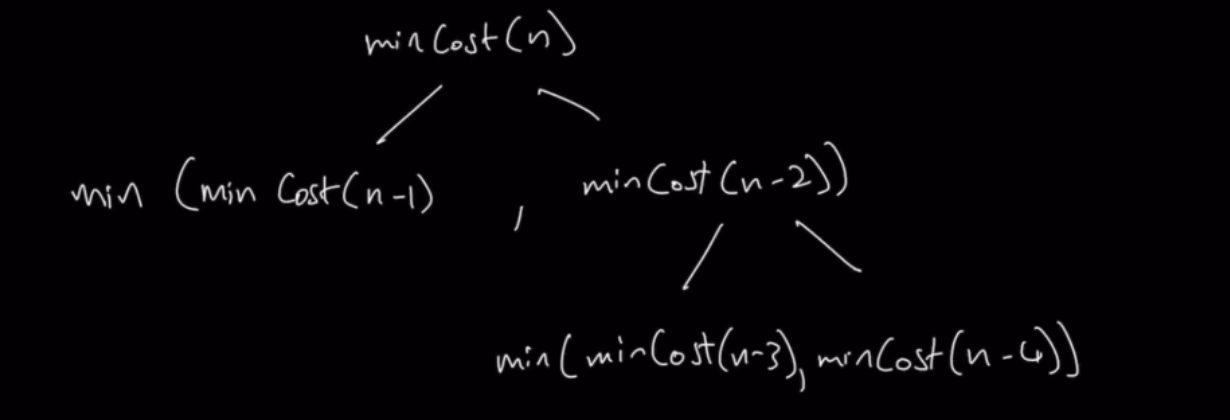 minCost(n)
min (min Cost(n-1) , minCost(n-2))
min(minCost(n-3), minCost(n-4))